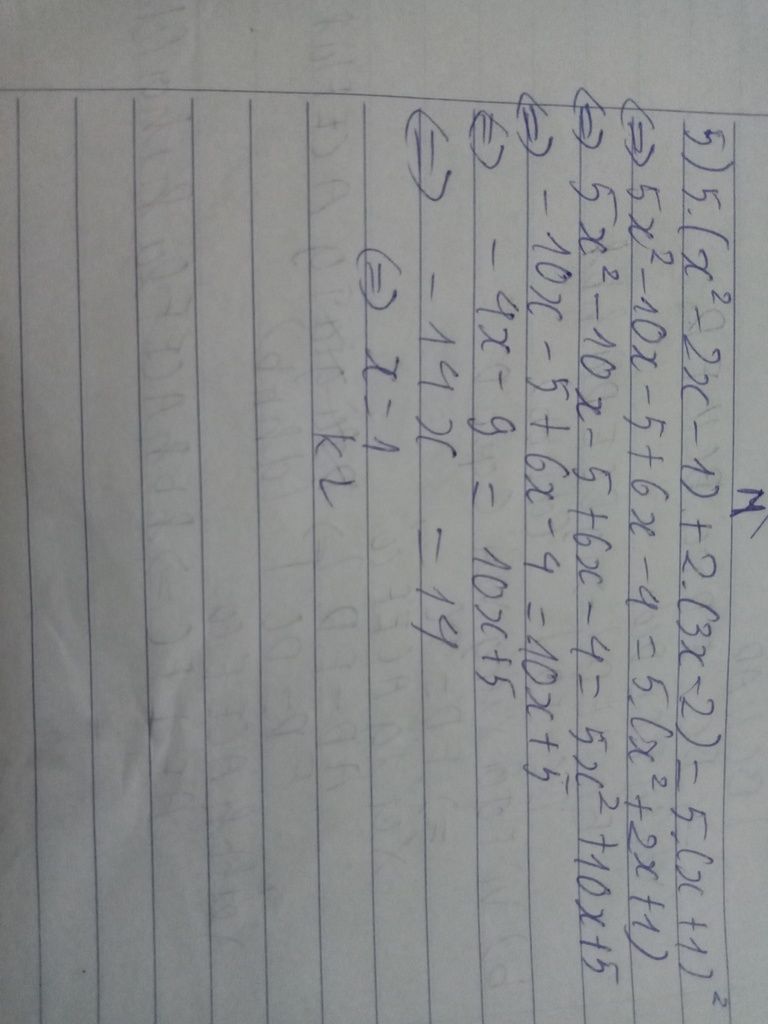 M
5) 5.(x²-2x-1)+2.(3x-2)=5.(x+1)²
(=) 5x²-10x-5+6x-4=5.(x²+2x+1)
(=) 5x²-10x-5+6x-4=5x²+10x+5
(=) -10x-5+6x-4=10x+5
(=) -4x-9=10x+5
(=) -14x=14
(=) x=1
kl